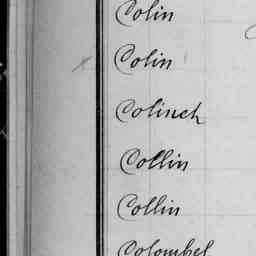 Colin
Colin
Colinch
Collin
Collin
Colombel